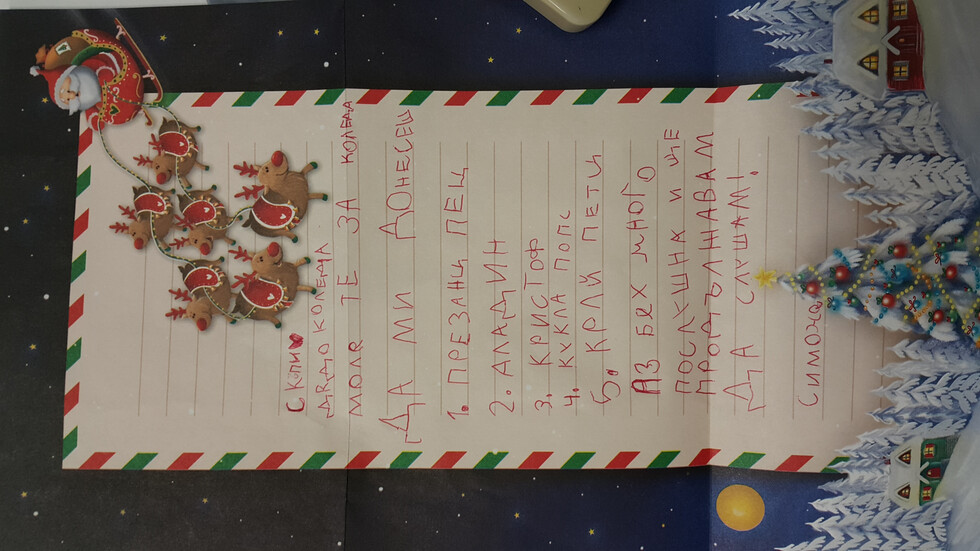 СКОПИ
ДЯДО КОЛЕДА
МОЛЯ ТЕ ЗА КОЛЕДА
ДА МИ ДОНЕСЕШ
1. ПРЕЗАНЦ ПЕЦ
2. АЛАДИН
3. КРИСТОФ
4. КУКЛА ПОПС
5. КРЛИ ПЕТИ
АЗ БЕХ МНОГО
ПОСЛУШНА И ЩЕ
ПРОДЪЛЖАВАМ
ДА СЛУШАМ!